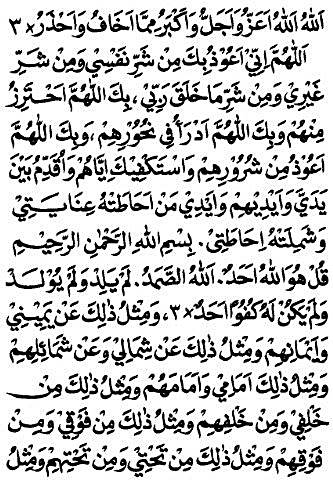 اَللهُ اَللهُ اَعَزُّ وَاَجَلُّ وَاَكْبَرُ مِمَّا اَخَافُ وَاَحْذَرُ ×٣
اَللّٰهُمَّ اِنِّيْ اَعُوْذُ بِكَ مِنْ شَرِّ نَفْسِيْ وَمِنْ شَرِّ
غَيْرِيْ وَمِنْ شَرِّ مَا خَلَقَ رَبِّيْ، بِكَ اللّٰهُمَّ اَحْتَرِزُ
مِنْهُمْ وَبِكَ اللّٰهُمَّ اَدْرَأُ فِيْ نُحُوْرِهِمْ، وَبِكَ اللّٰهُمَّ
اَعُوْذُ مِنْ شُرُوْرِهِمْ وَاَسْتَكْفِيْكَ اِيَّاهُمْ وَاُقَدِّمُ بَيْنَ
يَدَيَّ وَاَيْدِيْهِمْ وَاَيْدِيْ مَنْ اَحَاطَتْهُ عِنَايَتِيْ
وَشَمِلَتْهُ اِحَاطَتِيْ. بِسْمِ اللهِ الرَّحْمٰنِ الرَّحِيْمِ
قُلْ هُوَ اللهُ اَحَدٌ. اَللهُ الصَّمَدُ. لَمْ يَلِدْ وَلَمْ يُوْلَدْ
وَلَمْ يَكُنْ لَهُ كُفُوًا اَحَدٌ ×٣، وَمِثْلُ ذٰلِكَ عَنْ يَمِيْنِيْ
وَاَيْمَانِهِمْ وَمِثْلُ ذٰلِكَ عَنْ شِمَالِيْ وَعَنْ شَمَائِلِهِمْ
وَمِثْلُ ذٰلِكَ اَمَامِيْ وَاَمَامَهُمْ وَمِثْلُ ذٰلِكَ مِنْ
خَلْفِيْ وَمِنْ خَلْفِهِمْ وَمِثْلُ ذٰلِكَ مِنْ فَوْقِيْ وَمِنْ
فَوْقِهِمْ وَمِثْلُ ذٰلِكَ مِنْ تَحْتِيْ وَمِنْ تَحْتِهِمْ وَمِثْلُ